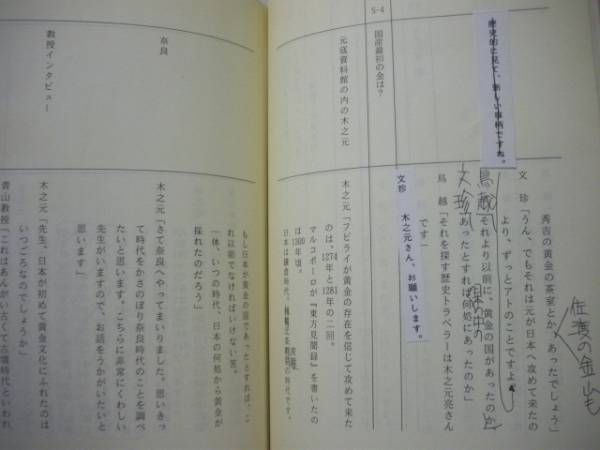 佐渡の金山も
秀吉の黄金の茶室とか、あったでしょう」
文 珍「うん、でもそれは元が日本へ攻めて来たの
より、ずっとアトのことですよ」
鳥越
それより以前に、黄金の国があったのか
日本の中の
文珍
あったとすれば何処にあったのか」
鳥 越「それを探す歴史トラベラーは木之元亮さん
です」
歴史的と見て、新しい事柄ですね。
文珍 木之元さん、お願いします。
S-4
国産最初の金は？
元寇資料館の内の木之元
木之元「フビライが黄金の存在を信じて攻めて来た
のは、1274年と1281年の二回。
マルコポーロが『東方見聞録』を書いたの
は1300年頃。
日本は鎌倉時代、の時代です。
もし日本が黄金の国であったとすれば、こ
れ以前でなければいけない筈。
一体、いつの時代、日本の何処から黄金が
採れたのだろう」
奈良
木之元「さて奈良へやってまいりました。思いきっ
て時代をかさのぼり奈良時代のことを調べ
たいと思います。こちらに非常にくわしい
先生がいますので、お話をうかがいたいと
思います」
教授インタビュー
木之元「先生、日本が初めて黄金文化にふれたのは
いつごろなのでしょうか」
青山教授「これはあんがい古くて古墳時代といわれ